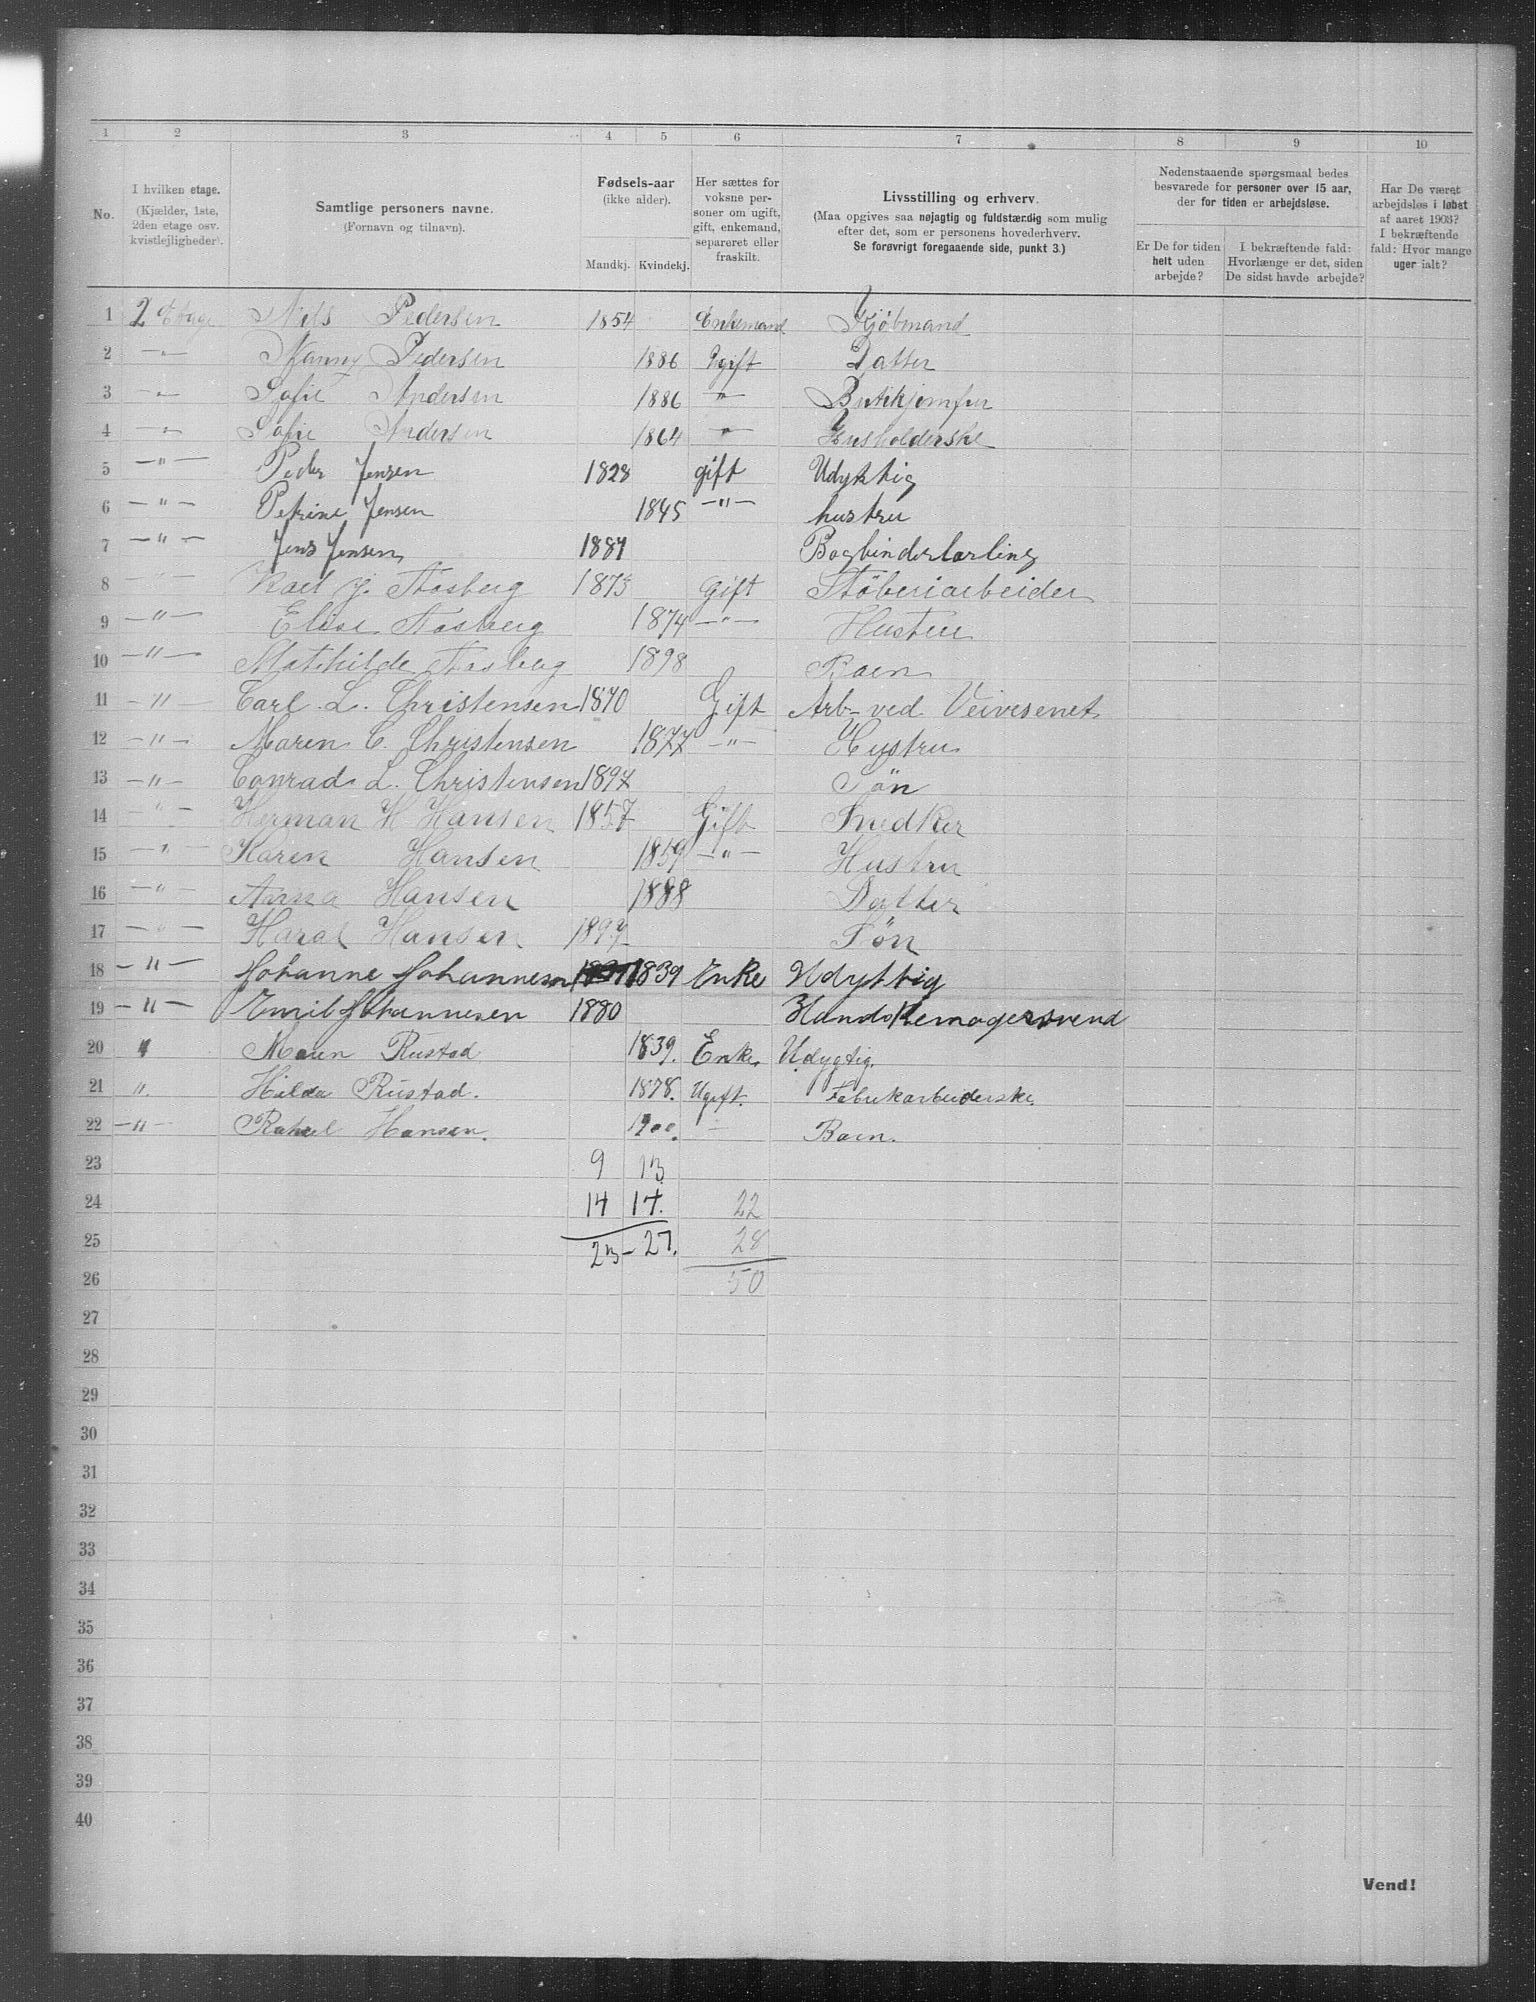 1 2 3 4 5 6 7 8 9 10
No.
I hvilken etage.
(Kjælder, 1ste,
2den etage osv.
kvistlejligheder).
Samtlige personers navne.
(Fornavn og tilnavn).
Fødsels-aar
(ikke alder).
Mandkj. Kvindekj.
Her sættes for
voksne per-
soner om ugift,
gift, enkemand,
separeret eller
fraskilt.
Livsstilling og erhverv.
(Maa opgives saa nøjagtig og fuldstærdig som mulig
efter det, som er personens hovederhverv.
Se forøvrigt foregaaende side, punkt 3.)
Nedenstaaende spørgsmaal bedes
besvarede for personer over 15 aar,
der for tiden er arbejdsløse.
Er De for tiden
helt uden
arbejde?
I bekræftende fald:
Hvorlænge er det, siden
De sidst havde arbejde?
Har De været
arbejdsløs i løbet
af aaret 1903?
I bekræftende
fald: Hvor mange
uger ialt?
1 2 Etage Niels Pedersen 1854 Enkemand Kjøbmand
2 —"— Nanny Pedersen 1886 Ugift Datter
3 " Sofie Andersen 1886 " Butikjomfru
4 " Sofie Andersen 1864 " Husholderske
5 —"— Peder Jensen 1828 gift Udyktig
6 —"— Petrine Jensen 1845 —"— hustru
7 —"— Jens Jensen 1887 Bogbinderlærling
8 — — Karl J. Aasberg 1873 Gift Støberiarbeider
9 —"— Elise Aasberg 1874 —"— Hustru
10 —"— Mathilde Aasberg 1898 Barn
11 —"— Carl. L. Christensen 1870 Gift Arb- ved Veivesenet
12 —"— Maren C. Christensen 1877 —"— Hustru
13 —"— Conrad L. Christensen 1897 Søn
14 —"— Herman H Hansen 1857 Gift Snedker
15 —"— Karen Hansen 1859 —"— Hustru
16 —"— Anna Hansen 1888 Datter
17 —"— Haral Hansen 1897 Søn
18 —"— Johanne Johannesen 1839 Enke Udyttig
19 —"— Emil Johannesen 1880 Handskemagersvend
20 " Maren Rustad 1839. Enke. Udygtig.
21 ". Hilda Rustad. 1878. Ugift. Fabrikarbeiderske.
22 —"— Rakel Hansen. 1900. — Barn.
23 9 13
24 14 14. 22
25 23 – 27. 28
26 50
27
28
29
30
31
32
33
34
35
36
37
38
39
40
Vend!